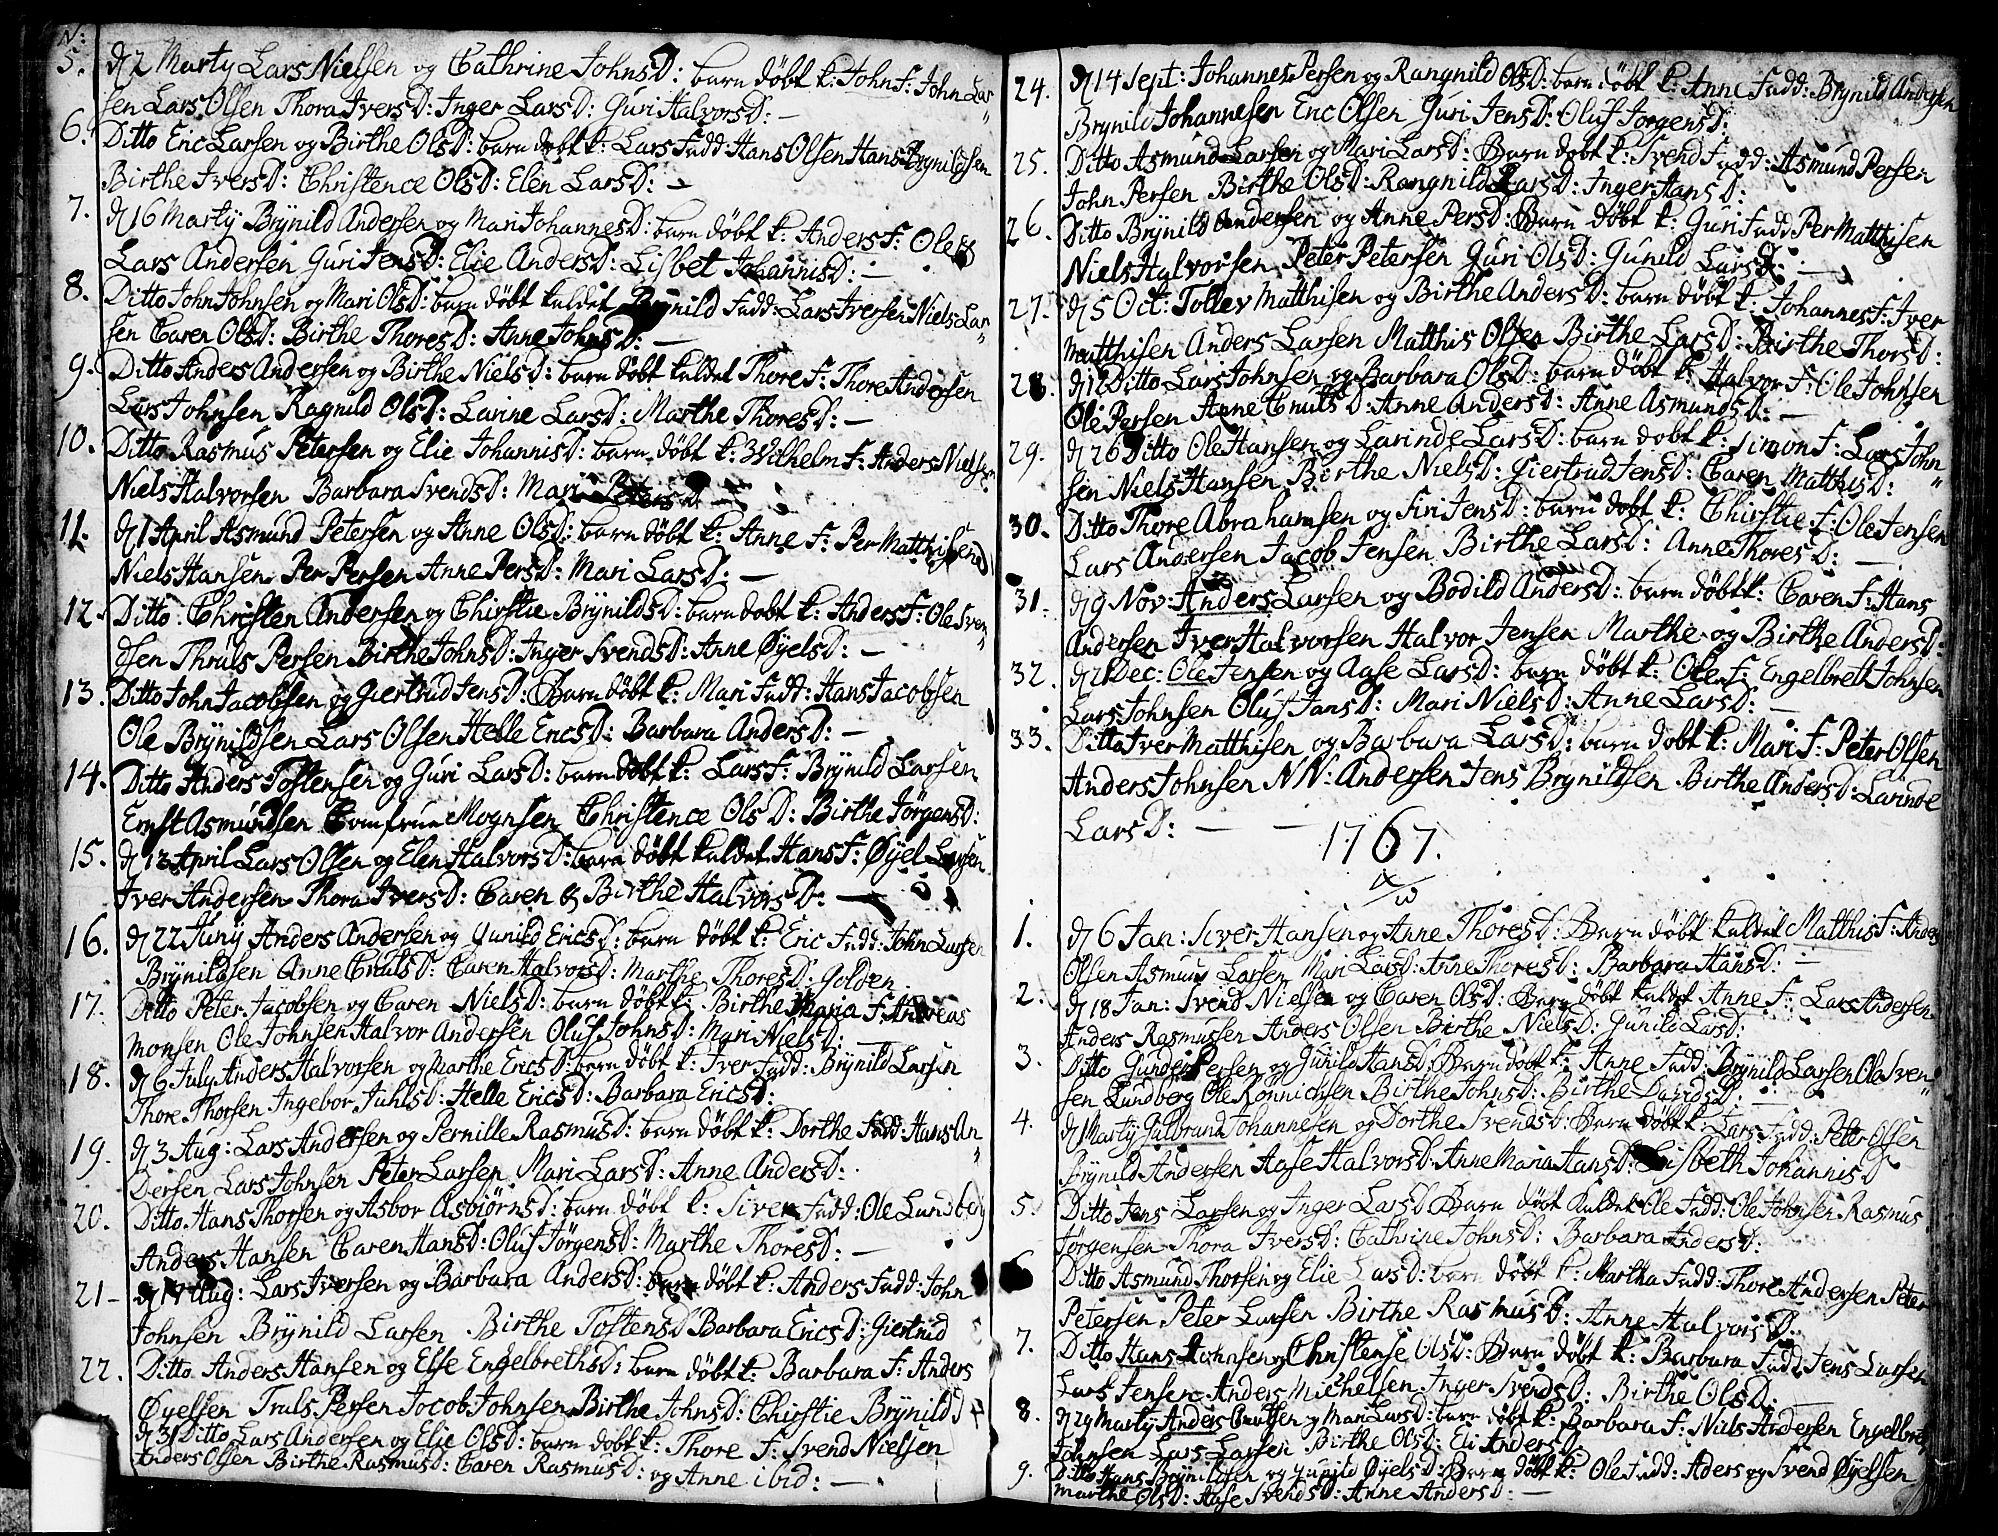 N:
5. d 2 Marty Lars Nielsen og Cathrine JohnsD: barn döbt k: John F: John Lar„
sen Lars Olsen Thora IversD: Inger LarsD: Guri HalvorsD: —
6. Ditto Eric Larsen og Birthe OlsD: barn döbt k: Lars Fadd Hans Olsen Hans Brÿnildsen
Birthe IversD: Christence OlsD: Elen LarsD: —
7. d 16 Marty Brÿnild Andersen og Mari JohannesD: barn döbt k: Anders F: Ole
Lars Andersen Guri JensD: Elie AndersD: Lisbet JohannisD: —
8. Ditto John Johnsen og Mari OlsD: barn döbt kaldet Brÿnild Fadd: Lars Iversen Niels Lar„
sen Caren OlsD: Birthe ThoresD: Anne JohnsD: —
9. Ditto Anders Andersen og Birthe NielsD: barn döbt kaldet Thore F: Thore Andersen
Lars Johnsen Ragnild OlsD: Larine LarsD: Marthe ThoresD: —
10. Ditto Rasmus Petersen og Elie JohannisD: barn döbt k: Wilhelm F: Anders Nielsen
Niels Halvorsen Barbara SvendsD: Mari PetersD —
11. d 1 April Asmund Petersen og Anne OlsD: barn döbt k: Anne F: Per Matthisen
Niels Hansen Per Persen Anne PersD: Mari LarsD: —
12. Ditto Christen Andersen og Chirstie BrÿnildsD: barn dobt k: Anders F: Ole Sven„
dsen Thruls Persen Birthe JohnsD: Inger SvendsD: Anne ØyelsD: —
13. Ditto John Jacobsen og Giertrud JensD: Barn döbt k: Mari Fadd: Hans Jacobsen
Ole Brÿnildsen Lars Olsen Helle EricsD: Barbara AndersD: —
14. Ditto Anders Tostensen og Guri LarsD: barn döbt k: Lars F: Brÿnild Larsen
Ernst Asmundsen Comfrue Mognsen Christence OlsD: Birthe JörgensD:
15. d 13 April Lars Olsen og Elen HalvorsD: barn döbt kaldet Hans F: Øÿel Larsen
Iver Andersen Thora IversD: Caren & Birthe HalvorsD: —
16. d 22 Junÿ Anders Andersen og Gunild EricsD: barn döbt k: Eric Fadd: John Larsen
Brÿnildsen Anne CnutsD: Caren HalvorsD: Marthe ThoresD: Golden
17. Ditto Peter Jacobsen og Caren NielsD: barn döbt k: Birthe Maria F: Andreas
Monsen Ole Johnsen Halvor Andersen Oluf JohnsD: Mari NielsD: —
18. d 6 July Anders Halvorsen og Marthe EricsD: barn döbt k: Iver Fadd: Brÿnild Larsen
Thore Thorsen Ingebor JuhlsD: Helle EricsD: Barbara EricsD:
19. d 3 Aug: Lars Andersen og Pernille RasmusD: barn döbt k: Dorthe Fadd: Hans An„
dersen Lars Johnsen Peter Larsen Mari LarsD: Anne AndersD:
20. Ditto Hans Thorsen og Asbor AsbiörnsD: barn döbt k: Siver Fadd: Ole Lundberg
Anders Hansen Caren HansD: Oluf JörgensD: Marthe ThoresD: —
21 d 17 Aug: Lars Iversen og Barbara AndersD: barn döbt k: Anders Fadd: John
Johnsen Brÿnild Larsen Birthe TostensD Barbara EricsD: Giertrud
22. Ditto Anders Hansen og Else EngelbrethsD: barn döbt k: Barbara F: Anders
Øyelsen Truls Persen Jocob Johnsen Birthe JohnsD: Chirstie BrÿnildsD
d 31 Ditto Lars Andersen og Elie OlsD: barn döbt k: Thore F: Svend Nielsen
Anders Olsen Birthe RasmusD: Caren RasmusD: og Anne ibid: —
24. d 14 Sept: Johannes Persen og Rangnild OlsD: barn döbt k: Anne Fadd: Brÿnild Andersen
Brÿnild Johannesen Eric Olsen Guri JensD: Oluf JorgensD:
25. Ditto Asmund Larsen og Mari LarsD: Barn döbt k: Svend Fadd: Asmund Persen
John Persen Birthe OlsD: Rangnild LarsD: Inger HansD:
26. Ditto Brÿnild Andersen og Anne PersD: Barn döbt k: Guri Fadd Per Matthisen
Niels Halvorsen Peter Petersen Guri OlsD: Gunild LarsD: —
27. d 5 Oct: Tollev Matthisen og Birthe AndersD: barn döbt k: Johannes F: Iver
Matthisen Anders Larsen Matthis Olsen Birthe LarsD: Birthe ThorsD:
28. d 12 Ditto Lars Johnsen og Barbara OlsD: barn döbt k: Halvor F: Ole Johnsen
Ole Persen Anne CnutsD: Anne AndersD: Anne AsmundsD: —
29. d 26 Ditto Ole Hansen og Larinde LarsD: barn dobt k: Simon F: Lars John„
sen Niels Hansen Birthe NielsD: Giertrud JensD: Caren MatthisD:
30. Ditto Thore Abrahamsen og Siri JensD: barn dobt k: Chirstie F: Ole Jensen
Lars Andersen Jacob Jensen Birthe LarsD: Anne ThoresD: —
31. d 9 Nov: Anders Larsen og Bodild AndersD: barn döbt k: Caren F: Hans
Andersen Iver Halvorsen Halvor Jensen Marthe og Birthe AndersD:
32. d 21 Dec: Ole Jensen og Aase LarsD: barn döbt k: Ole F: Engelbrett Johnsen
Lars Johnsen Oluf JansD: Mari NielsD: Anne LarsD: —
33. Ditto Iver Matthisen og Barbara LarsD: barn döbt k: Mari F: Peter Olsen
Anders Johnsen NN: Andersen Jens Brÿnildsen Birthe AndersD: Larinde
LarsD: — —
1767.
1. d 6 Jan: Siver Hansen og Anne ThoresD: Barn döbt kaldet Matthis F: Anders
Olsen Asmund Larsen Mari LarsD: Anne ThoresD: Barbara HansD: —
2. d 18 Jan: Svend Nielsen og Caren OlsD: Barn döbt kaldet Anne F: Lars Andersen
Anders Rasmussen Anders Olsen Birthe NielsD: Gunild LarsD:
3. Ditto Gunder Persen og Gunild HansD: Barn döbt k: Anne Fadd: Brÿnild Larsen Ole Sven„
sen Lundberg Ole Ronnichsen Birthe JohnsD: Birthe DavidsD: —
4. d 1 Marty Gulbrand Johannesen og Dorthe SvendsD: Barn döbt k: Lars Fadd: Peter Olsen
Brÿnild Andersen Aase HalvorsD: Anne Maria HansD: Lisbeth JohannisD
5. Ditto Jens Larsen og Inger LarsD Barn döbt kaldet Ole Fadd: Ole Johnsen Rasmus
Jörgensen Thora IversD: Cathrine JohnsD: Barbara AndersD:
6 Ditto Asmund Thorsen og Elie LarsD: barn döbt k: Martha Fadd: Thore Andersen Peter
Petersen Peter Larsen Birthe RasmusD: Anne HalvorsD:
7. Ditto Hans Johnsen og Christense OlsD: Barn döbt k: Barbara Fadd: Jens Larsen
Lars Jensen Anders Michelsen Inger SvendsD: Birthe OlsD.
8. d 29 Marty Anders Cnutsen og Mari LarsD: barn döbt k: Barbara F: Niels Andersen Engelbret
Johnsen Lars Larsen Birthe OlsD: Eli AndersD
9. Ditto Hans Brÿnildsen og Gunild ØyelsD: Barn döbt k: Ole Fadd: Aders og Svend Øyelsen
Marthe OlsD: Aase SvendsD: Anne AndersD: —